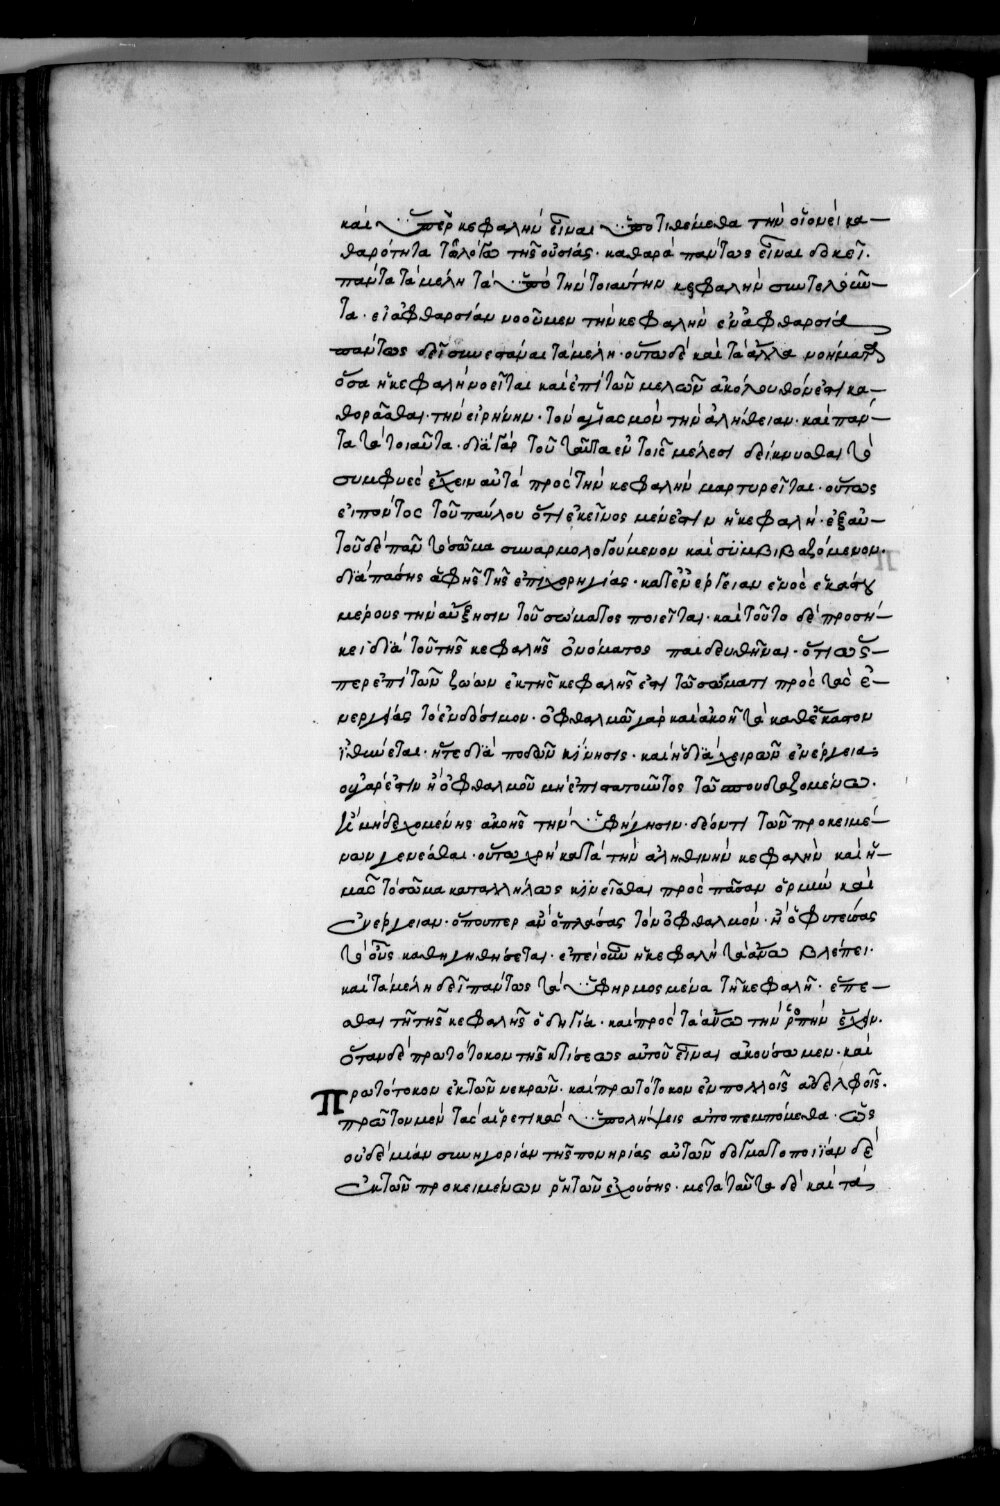 καὶ ὑπὲρ κεφαλὴν εἶναι ὑποτιθέμεθα τὴν οἱονεὶ κα-
θαρότητα τῷ λόγῳ τῆς οὐσίας· καθαρὰ πάντως εἶναι δοκεῖ·
πάντα τὰ μέλη τὰ ὑπὸ τὴν τοιαύτην κεφαλὴν συντελοῦν-
τα· εἰ ἀφθαρσίαν νοοῦμεν τὴν κεφαλὴν ἐν ἀφθαρσία
πάντως δεῖ συνεστάναι τὰ μέλη· οὕτω δὲ καὶ τὰ ἄλλα νοήματα
ὅσα ἡ κεφαλὴ νοεῖται καὶ ἐπὶ τῶν μελῶν ἀκόλουθόν ἐστι κα-
θορᾶσθαι· τὴν εἰρήνην· τὸν ἁγιασμὸν τὴν ἀλήθειαν· καὶ πάν-
τα τὰ τοιαῦτα· διὰ γὰρ τοῦ ταῦτα ἐν τοῖς μέλεσι δείκνυσθαι τὸ
συμφυὲς ἔχειν αὐτὰ πρὸς τὴν κεφαλὴν μαρτυρεῖται· οὕτως
εἰπόντος τοῦ παύλου ὅτι ἐκεῖνος μέν ἐστιν ἡ κεφαλή· ἐξ αὐ-
τοῦ δὲ πᾶν τὸ σῶμα συναρμολογούμενον καὶ συμβιβαζόμενον·
διὰ πάσης ἁφῆς τῆς ἐπιχορηγίας· κατ' ἐνέργειαν ἑνὸς ἑκάστου
μέρους τὴν αὔξησιν τοῦ σώματος ποιεῖται· καὶ τοῦτο δὲ προσή-
κει διὰ τοῦ τῆς κεφαλῆς ὀνόματος παιδευθῆναι· ὅτι ὥσ-
περ ἐπὶ τῶν ζώων ἐκ τῆς κεφαλῆς ἐστι τῷ σώματι πρὸς τὰς ἐ-
νεργείας τὸ ἐνδόσιμον· ὀφθαλμῷ γὰρ καὶ ἀκοῇ τὰ καθ' ἕκαστον
ἰθύνεται· ἥτε διὰ ποδῶν κίνησις· καὶ ἡ διὰ χειρῶν ἐνέργεια
οὐ γάρ ἐστιν ἢ ὀφθαλμοῦ μὴ ἐπιστατοῦντος τῷ σπουδαζομένω·
ἢ μὴ δεχομένης ἀκοῆς τὴν ὑφήγησιν· δέοντι τῶν προκειμέ-
νων γενέσθαι· οὕτω χρὴ κατὰ τὴν ἀληθινὴν κεφαλὴν καὶ ἡ-
μᾶς τὸ σῶμα καταλλήλως κινεῖσθαι πρὸς πᾶσαν ὁρμὴν καὶ
ἐνέργειαν· ὅπουπερ ἂν ὁ πλάσας τὸν ὀφθαλμόν· ἢ ὁ φυτεύσας
τὸ οὖς καθηγηθήσεται· ἐπεὶ οὖν ἡ κεφαλὴ τὰ ἄνω βλέπει·
καὶ τὰ μέλη δεῖ πάντως τὰ ὑφηρμοσμένα τῇ κεφαλῇ· ἕπε-
σθαι τῇ τῆς κεφαλῆς ὁδηγία· καὶ πρὸς τὰ ἄνω τὴν ῥοπὴν ἔχειν·
ὅταν δὲ πρωτότοκον τῆς κτίσεως αὐτοῦ εἶναι ἀκούσωμεν· καὶ
πρωτότοκον ἐκ τῶν νεκρῶν· καὶ πρωτότοκον ἐν πολλοῖς ἀδελφοῖς·
πρῶτον μὲν τὰς αἱρετικὰς ὑπολήψεις ἀποπεμπόμεθα· ὡς
οὐδεμίαν συνηγορίαν τῆς πονηρίας αὐτῶν δογματοποιΐαν δὲ
ἐκ τῶν προκειμένων ῥητῶν ἐχούσης· μετὰ ταῦτα δὲ καὶ τὰ